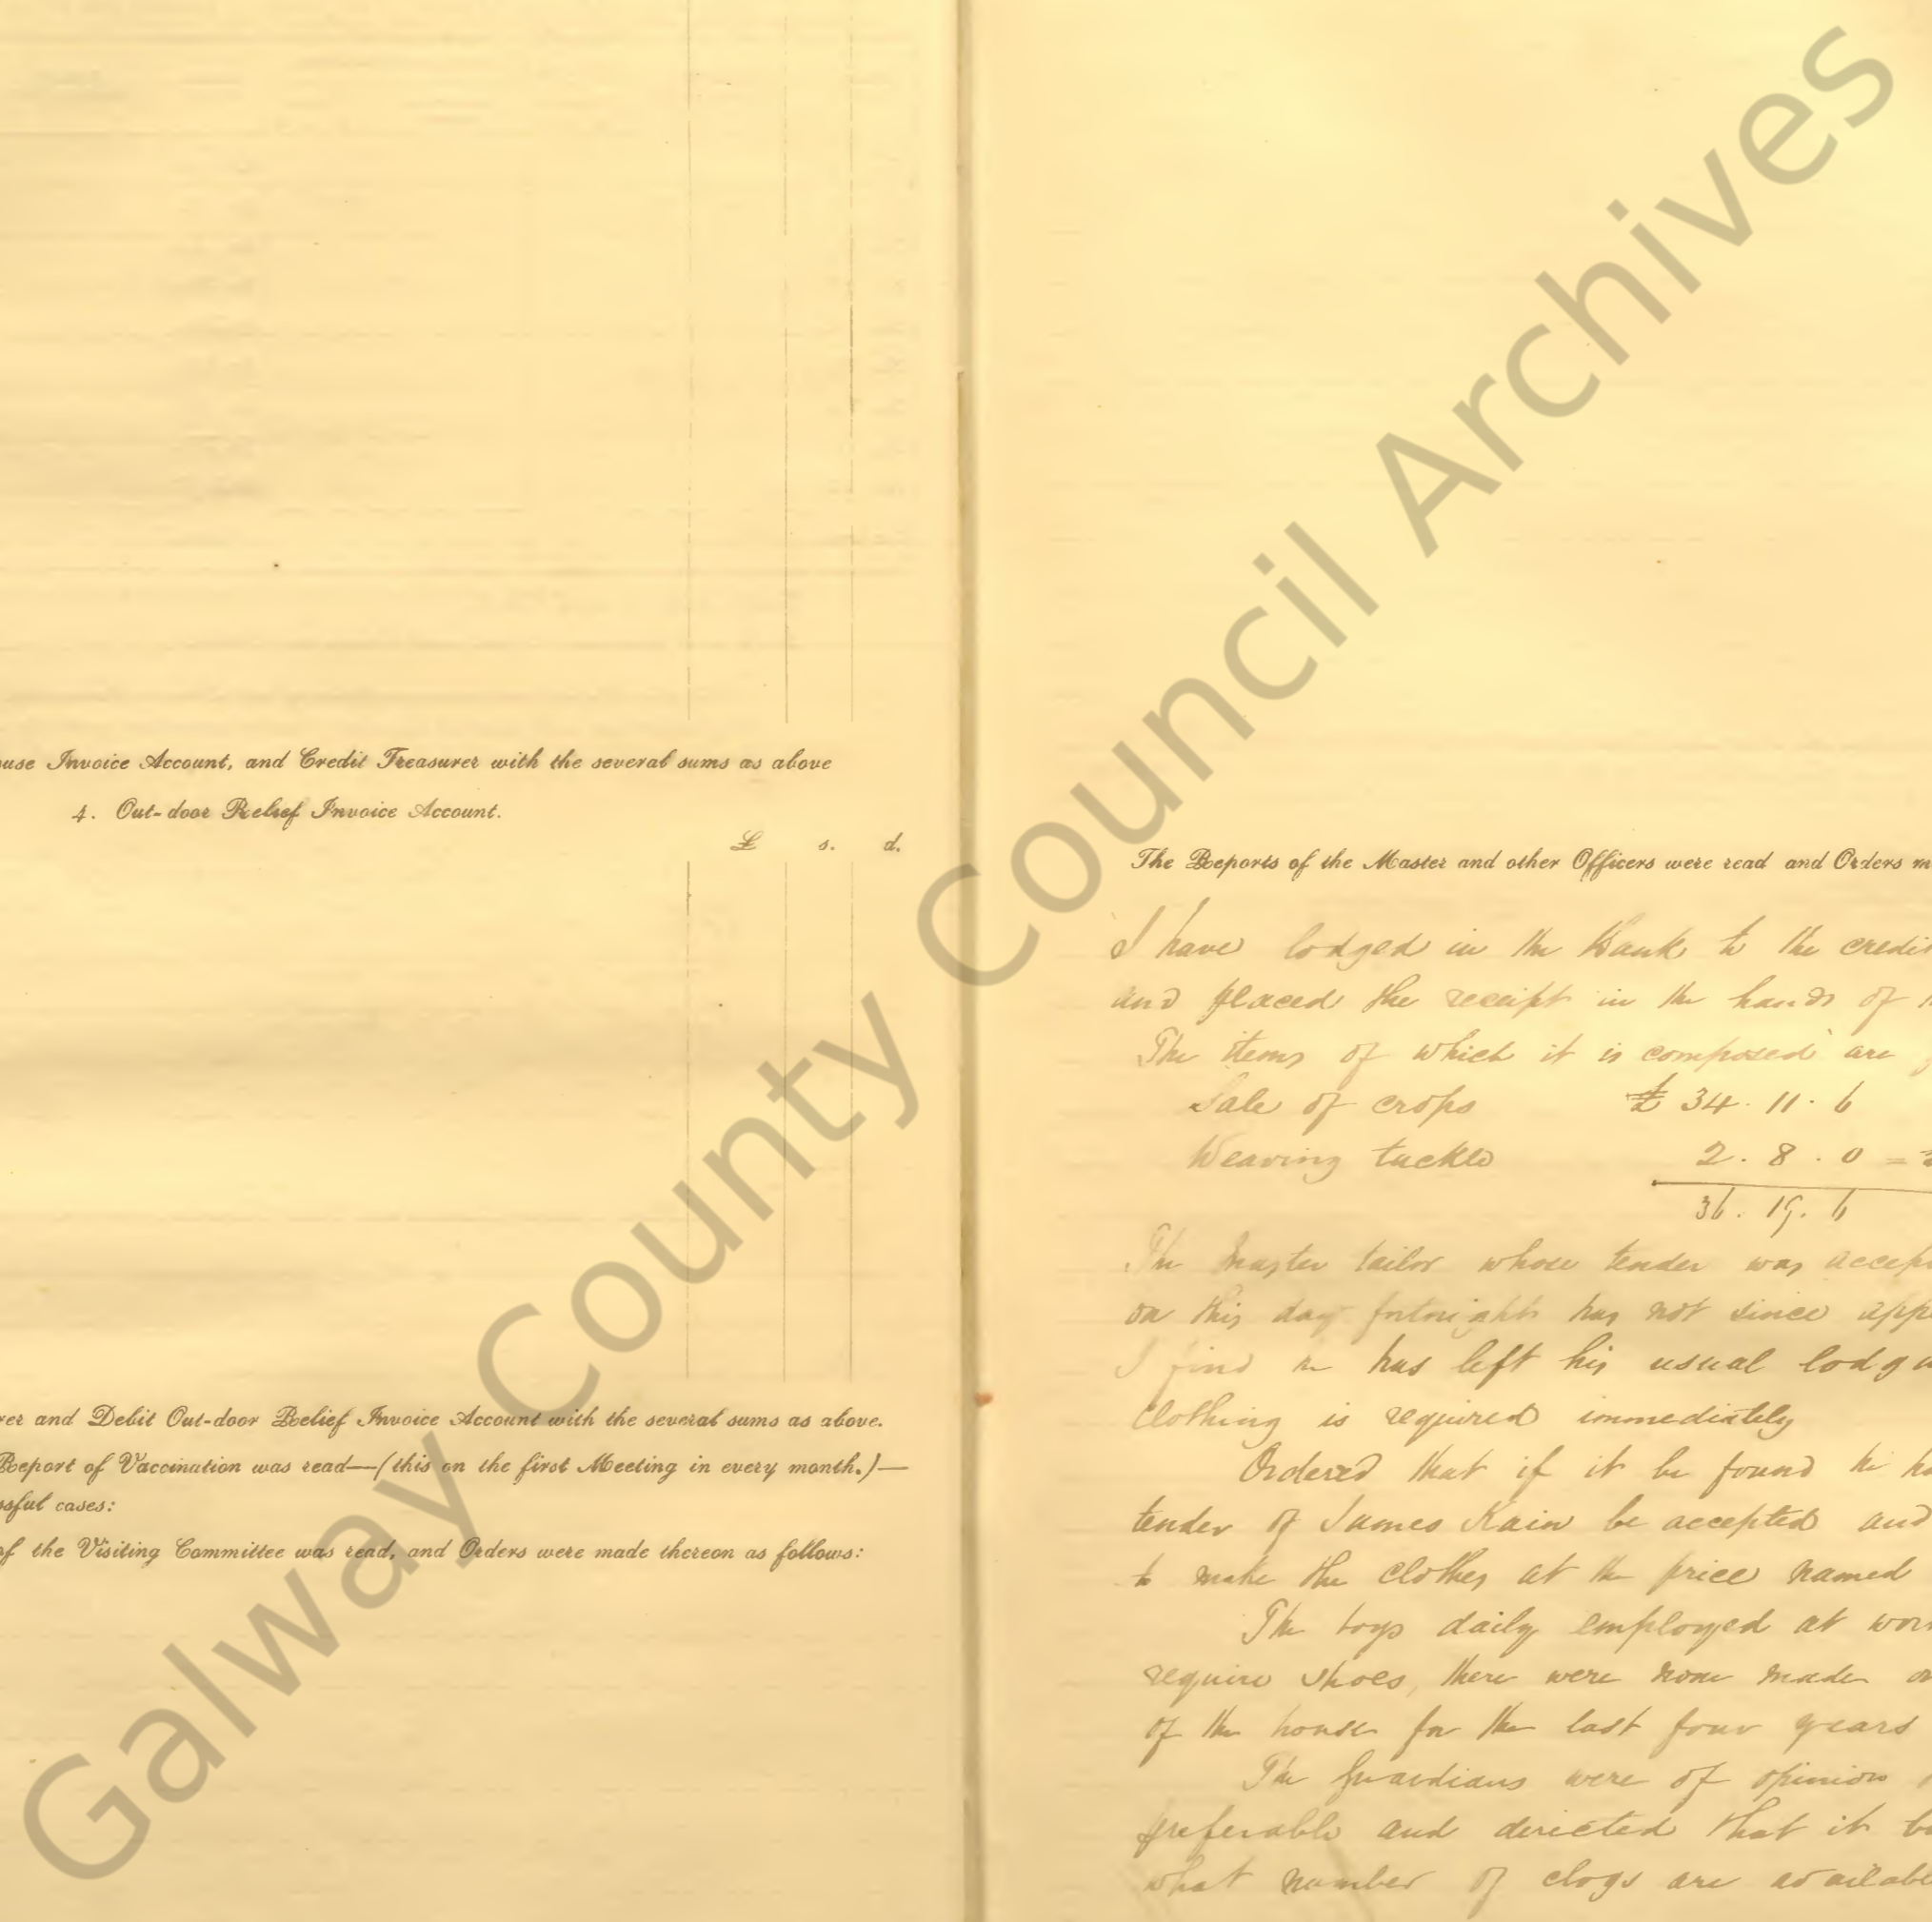 use Invoice Account, and Credit Treasurer with the several sums as above
4. Out-door Relief Invoice Account.
£ s. d.
rer and Debit Out-door Relief Invoice Account with the several sums as above.
Report of Vaccination was read—(this on the first Meeting in every month.)—
ssful cases:
of the Visiting Committee was read, and Orders were made thereon as follows:
The Reports of the Master and other Officers were read and Orders m
I have lodged in the Bank to the credit
and placed the receipt in the hands of
The items of which it is composed are
Sale of crops £ 34. 11. 6
Weaving tackle 2. 8. 0 =
36. 19. 6
The Master tailor whose tender was accep
on this day fortnight has not since appe
I find he has left his usual lodg
clothing is required immediately
Ordered that if it be found he ha
tender of James Kain be accepted and
to make the clothes at the price named
The boys daily employed at wor
require shoes, there were none made
of the house for the last four years
The Guardians were of opinion
preferable and directed that it b
what number of clogs are availabl
Galway County Council Archives